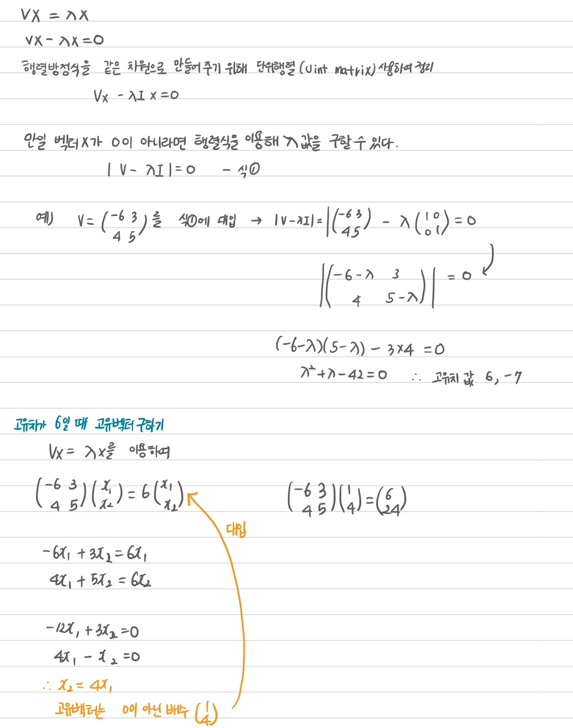 VX = λX
VX - λX = 0
행렬방정식을 같은 차원으로 만들어 주기 위해 단위행렬 (Uint matrix) 사용하여 정리
VX - λI X = 0
만일 벡터X가 0이 아니라면 행렬식을 이용해 λ값을 구할 수 있다.
| V - λI | = 0 - 식①
예) V = (-6 3 / 4 5) 를 식①에 대입 → |V-λI| = |(-6 3 / 4 5) - λ(1 0 / 0 1)| = 0
|(-6-λ 3 / 4 5-λ)| = 0
(-6-λ)(5-λ) - 3×4 = 0
λ² + λ - 42 = 0 ∴ 고유치 값 6, -7
고유치가 6일 때 고유벡터 구하기
VX = λX를 이용하여
(-6 3 / 4 5)(x₁ / x₂) = 6(x₁ / x₂) (-6 3 / 4 5)(1 / 4) = (6 / 24)
대입
-6x₁ + 3x₂ = 6x₁
4x₁ + 5x₂ = 6x₂
-12x₁ + 3x₂ = 0
4x₁ - x₂ = 0
∴ x₂ = 4x₁
고유벡터는 0이 아닌 배수 (1 / 4)